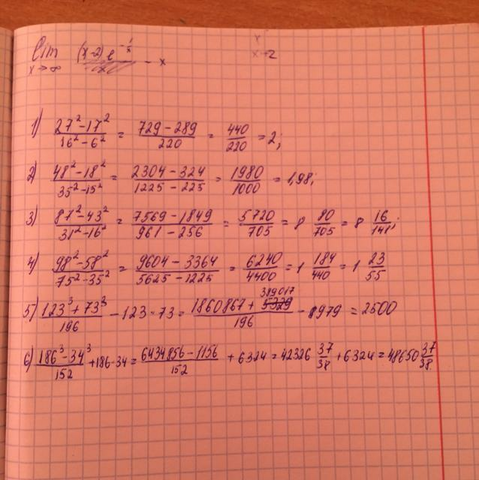 lim x→∞ (x-2) e^(-1/x) - x
x→2
1) (27²-17²)/(16²-6²) = (729-289)/220 = 440/220 = 2;
2) (48²-18²)/(35²-15²) = (2304-324)/(1225-225) = 1980/1000 = 1,98;
3) (87²-43²)/(31²-16²) = (7569-1849)/(961-256) = 5720/705 = 8 80/705 = 8 16/141;
4) (98²-58²)/(75²-35²) = (9604-3364)/(5625-1225) = 6240/4400 = 1 184/440 = 1 23/55
5) (123³+73³)/196 - 123·73 = (1860867+389017)/196 - 8979 = 2500
6) (186³-34³)/152 + 186·34 = (6434856-1156)/152 + 6324 = 42326 37/38 + 6324 = 48650 37/38